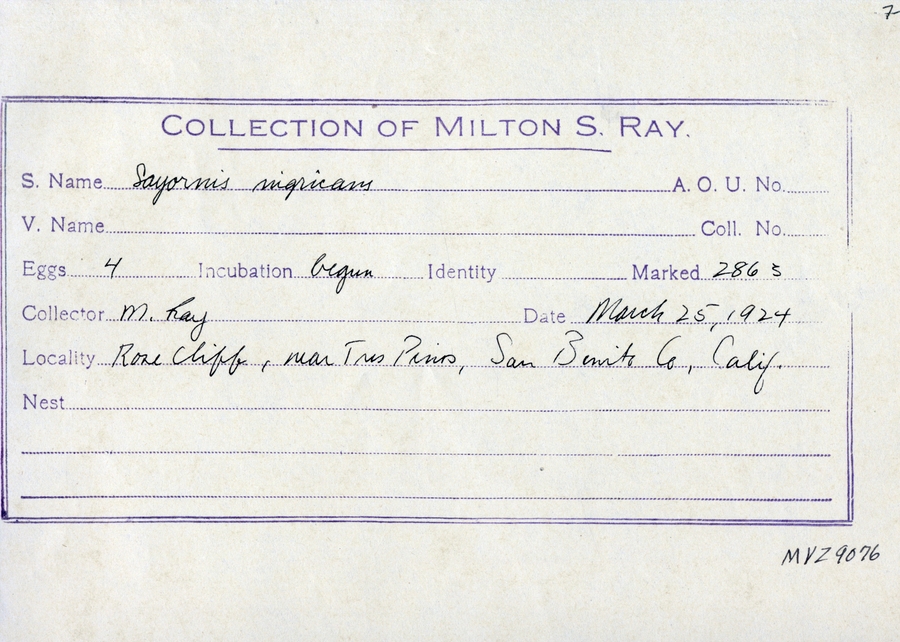 7-
COLLECTION OF MILTON S. RAY.
S. Name Sayornis nigricans A. O. U. No.
V. Name Coll. No.
Eggs 4 Incubation begun Identity Marked 286 5
Collector M. Ray Date March 25, 1924
Locality Rose Cliff, near Tres Pinos, San Benito Co, Calif.
Nest
MVZ 9076